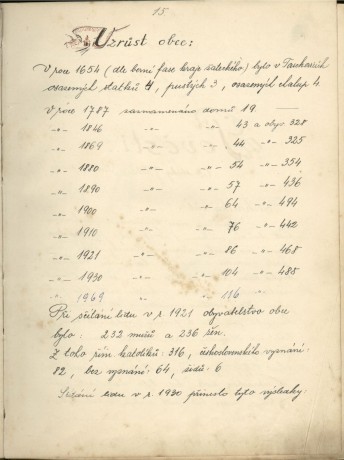 15
Vzrůst obce:
V roce 1654 (dle berní fase kraje žateckého) bylo v Tuchořicích
osazených statků 4, pustých 3, osazený chalup 4.
V roce 1787 zaznamenáno domů 19 —
-„- 1846 -„- 43 a obyv 328
-„- 1869 -„- 44 -„- 325
-„- 1880 -„- 54 -„- 354
-„- 1890 -„- 57 -„- 436
-„- 1900 -„- 64 -„- 494
-„- 1910 -„- 76 -„- 442
-„- 1921 -„- 86 -„- 468
-„- 1930 -„- 104 -„- 485
-„- 1949 -„- 116 -„-
Při sčítání lidu v r. 1921 obyvatelstvo obce
bylo: 232 mužů a 236 žen.
Z toho řím. katolíků: 316, československého vyznání:
82, bez vyznání: 64, židů: 6
Sčítání lidu v r. 1930 přineslo tyto výsledky: